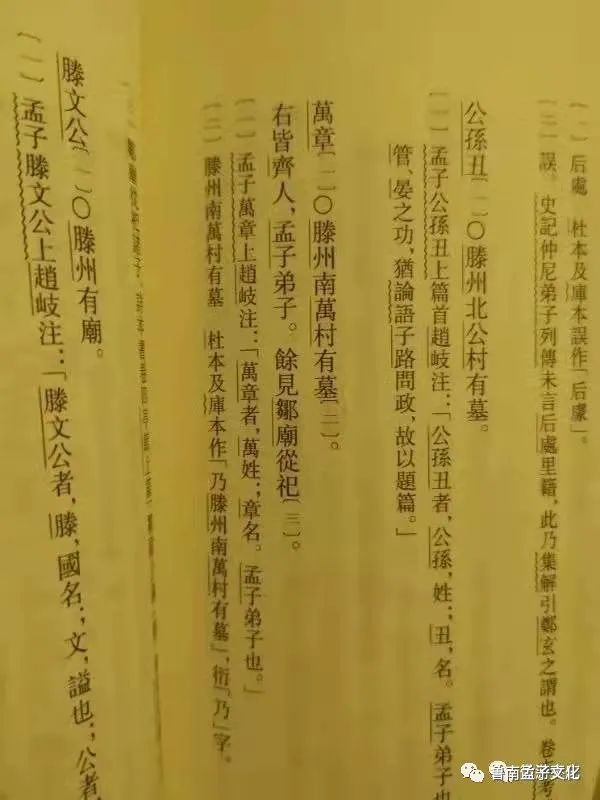 〔一〕后處　杜本及庫本誤作「后處」。
〔二〕誤。史記仲尼弟子列傳未言后處里籍，此乃集解引鄭玄之謂也。卷
公孫丑〔一〕〇滕州北公村有墓。
〔一〕孟子公孫丑上篇首趙岐注：「公孫丑者，公孫，姓；丑，名。孟子弟子也
管、晏之功，猶論語子路問政，故以題篇。」
萬章〔一〕〇滕州南萬村有墓〔二〕。
右皆齊人，孟子弟子。餘見鄒廟從祀〔三〕。
〔一〕孟子萬章上趙岐注：「萬章者，萬姓；章名。孟子弟子也。」
〔二〕滕州南萬村有墓　杜本及庫本作「乃滕州南萬村有墓」，衍「乃」字。
滕文公〔一〕〇滕州有廟。
〔一〕孟子滕文公上趙岐注：「滕文公者，滕，國名；文，謚也；公者，
魯南孟子文化